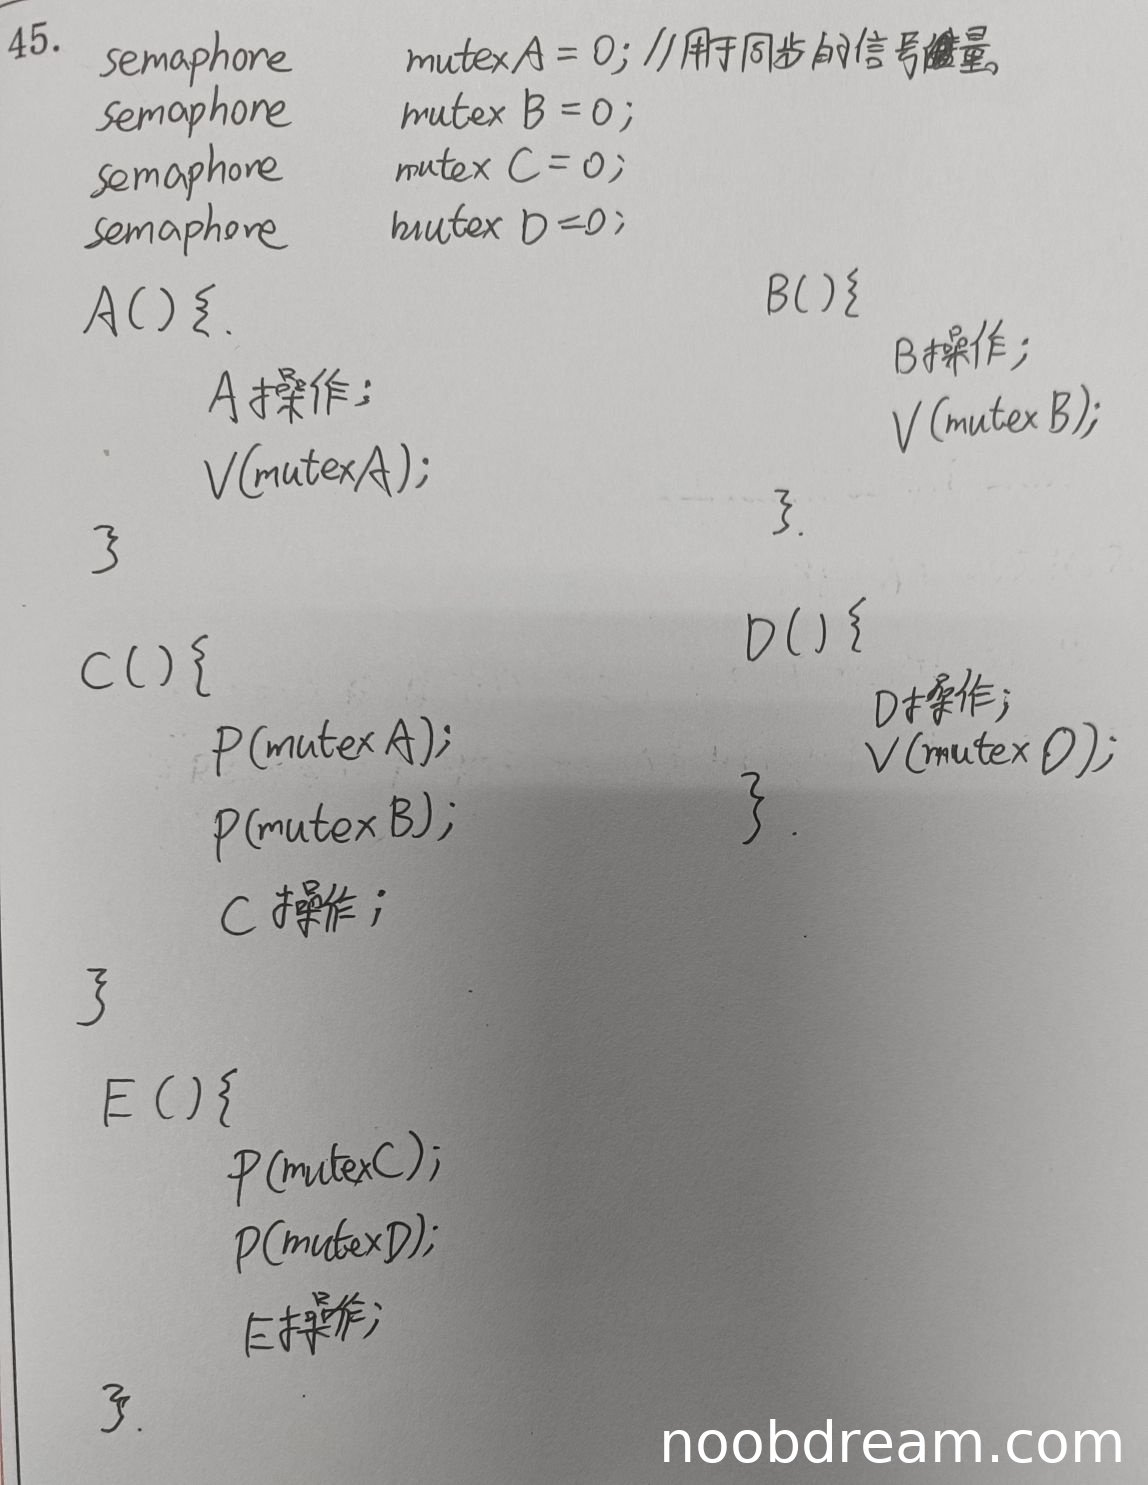 45.
semaphore mutexA = 0; //用于同步的信号量。
semaphore mutex B = 0;
semaphore mutex C = 0;
semaphore mutex D = 0;
A(){.
A操作;
V(mutexA);
}
B(){
B操作;
V(mutex B);
}.
C(){
P(mutex A);
P(mutex B);
C操作;
}
D(){
D操作;
V(mutex D);
}.
E(){
P(mutexC);
P(mutexD);
E操作;
}.
noobdream.com